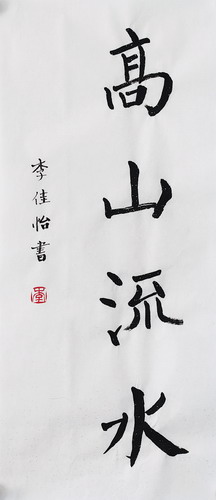 高山流水
李佳怡書